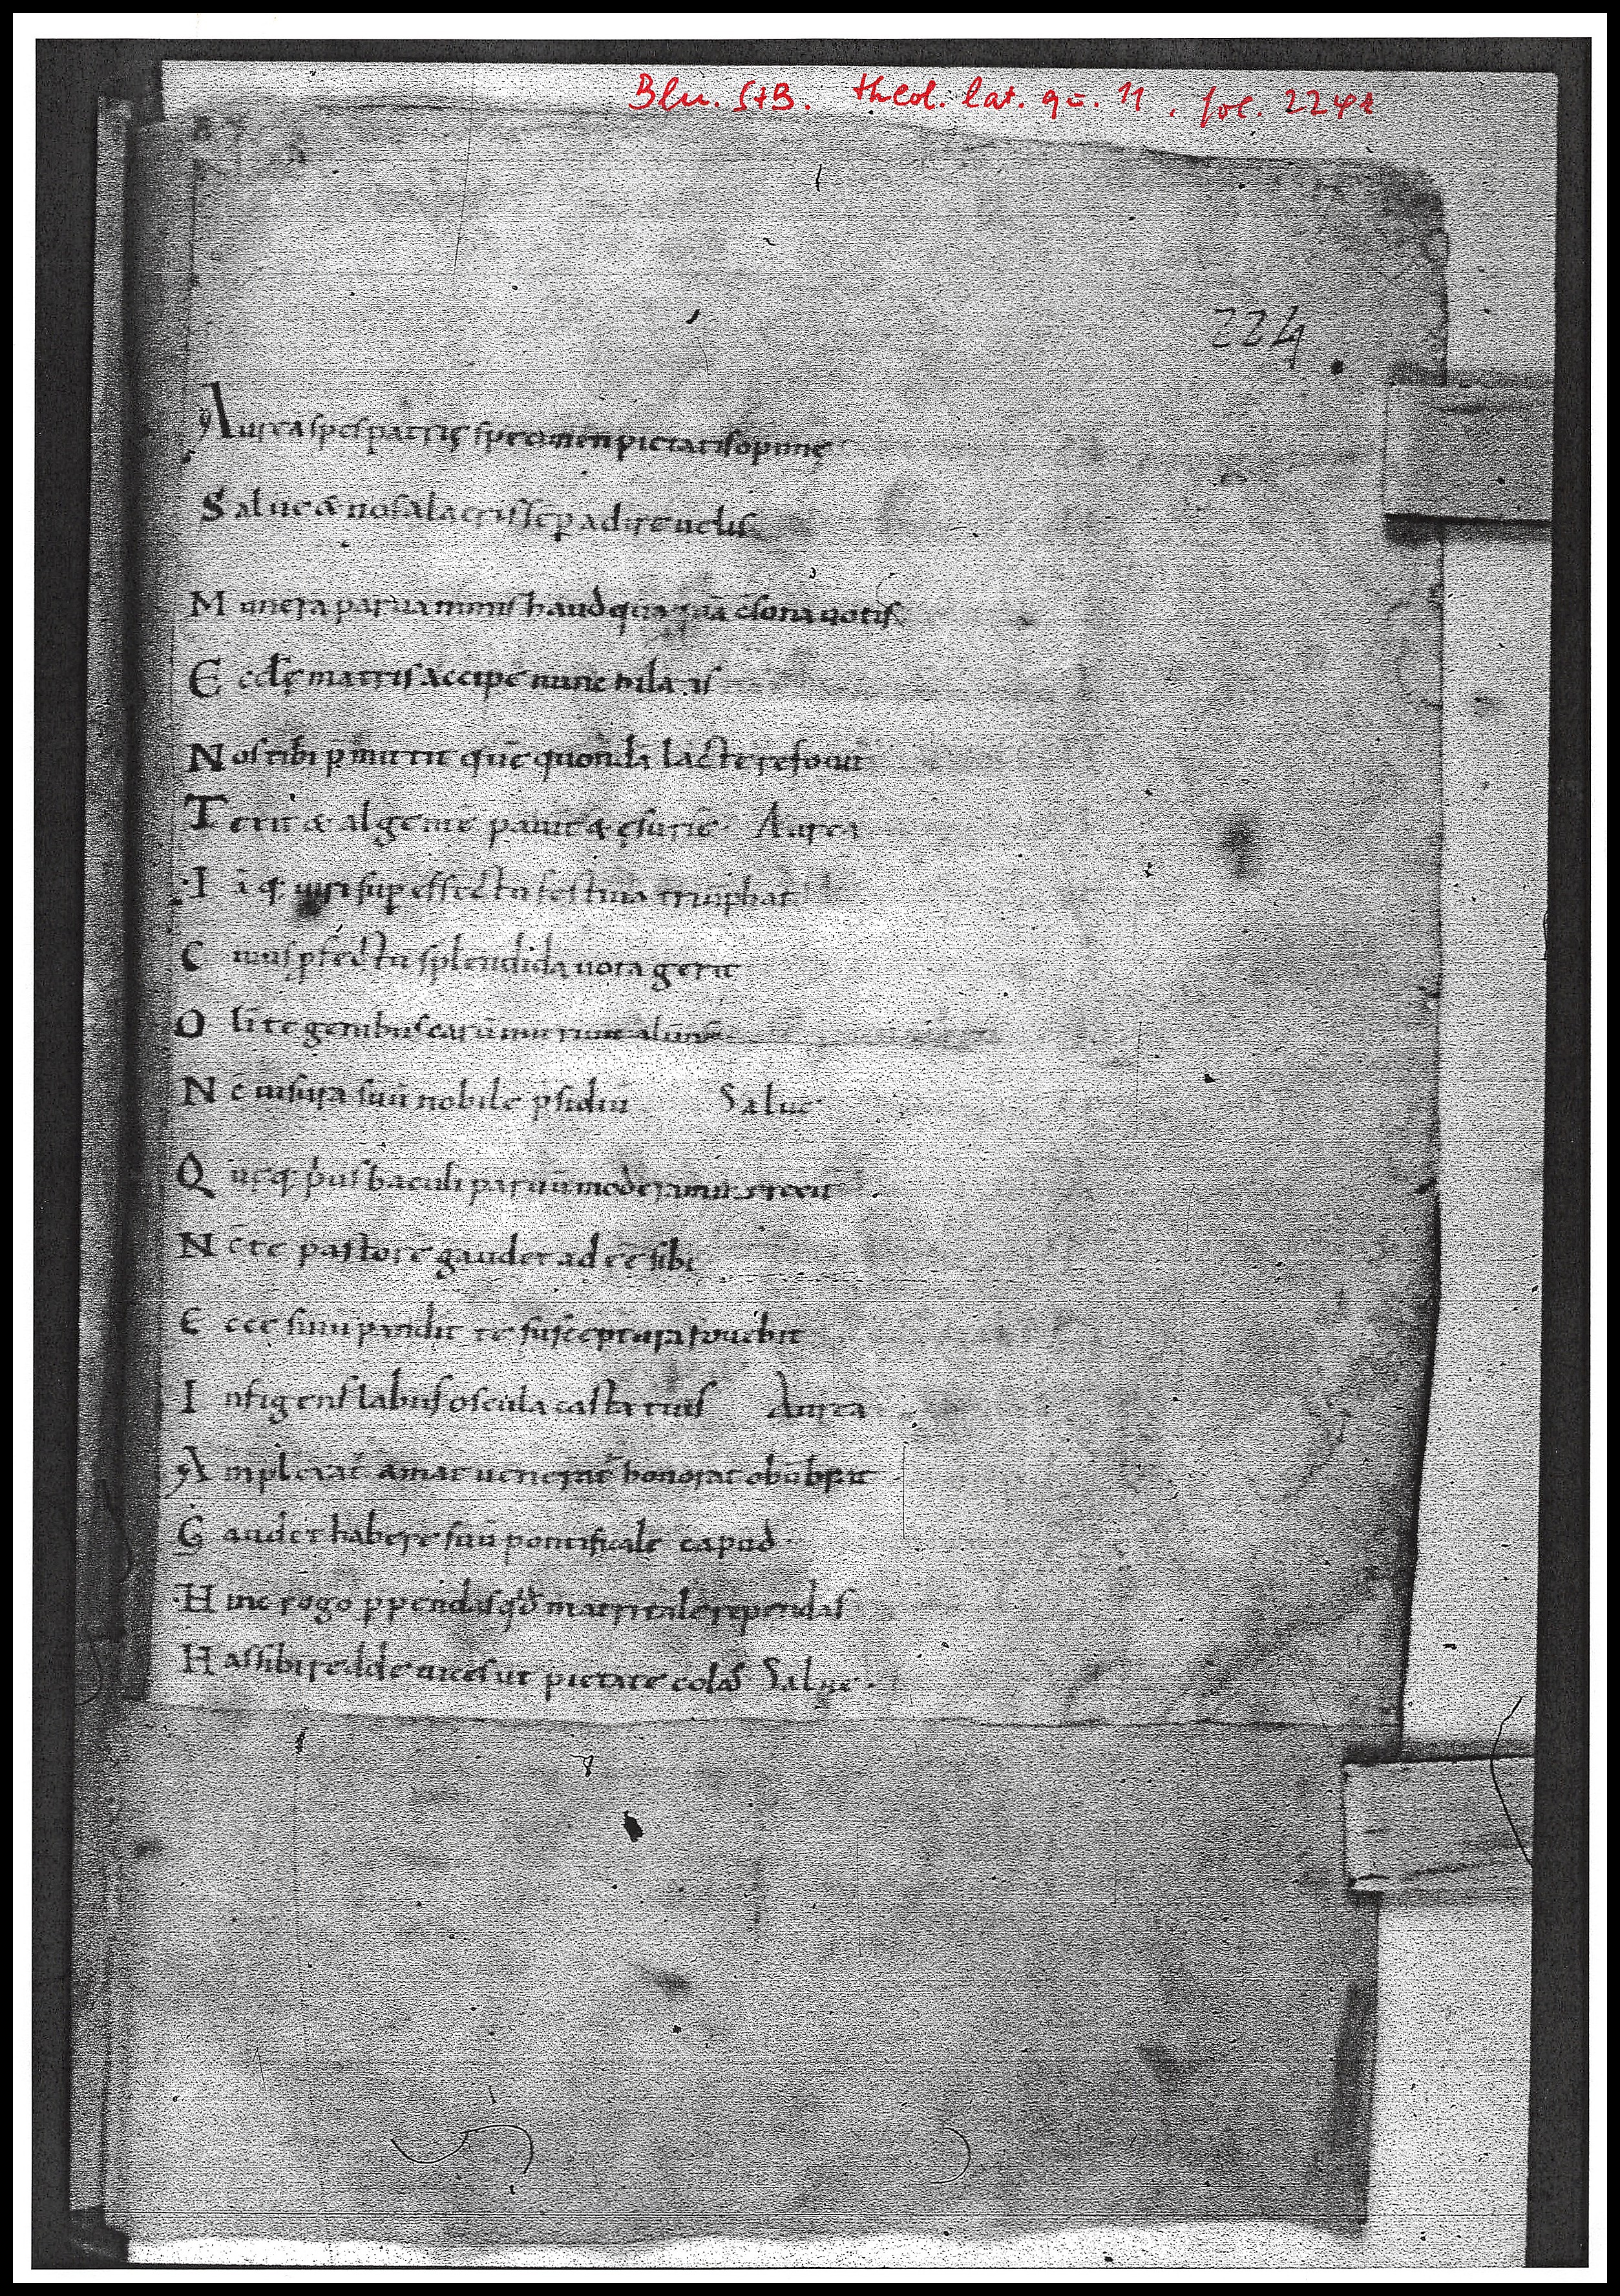 Bln. StB. theol. lat. qu. 11. fol. 224r
224
Aurea spes patrię specimen pietatis opimę
Salue & nos alacris sēp adire uelis
Munera parua minus haud quaquā c̄sona uotis
Eccłę matris accipe nunc hila is
Nos tibi p̄mittit quē quondā lacte refouit
Texit & algentē pauit & ęsuriē Aurea
Iāq; sup effectu festiua triūphat
Cuius pfectu splendida uota gerit
Oli te genibus carū alūnū
Nc̄ uisura suū nobile p̄sidiū Salue
Quęq; p̄us baculi paruū moderamine rexit
Nc̄ te pastorē gaudet adēē sibi
Ecce sinū pandit te susceptura fouebit
Infigens labiis oscula casta tuis Aurea
Amplexat̄ amat uenerat̄ honorat obūbrat
Gaudet habere suū pontificale capud
Hinc rogo ppendas qd̄ matri tale rependas
Has sibi redde uices ut pietate colas Salue.